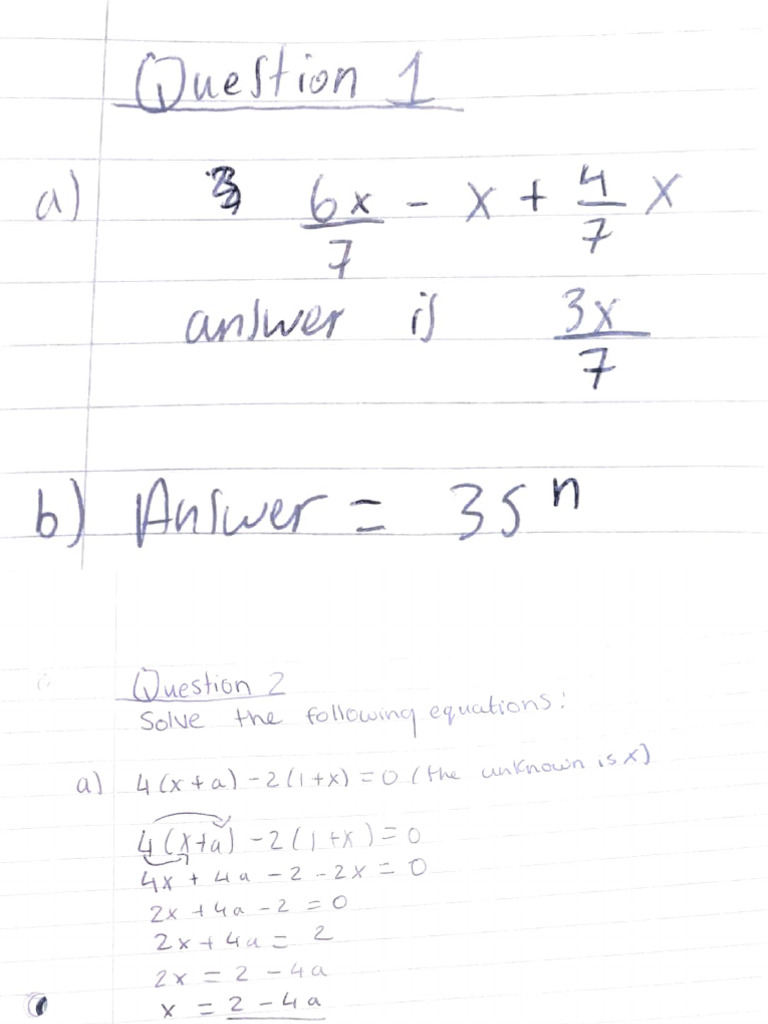 Question 1
a) 6x/7 - x + 4/7 x
answer is 3x/7
b) Answer = 35ⁿ
Question 2
Solve the following equations:
a) 4(x+a)-2(1+x)=0 (the unknown is x)
4(x+a)-2(1+x)=0
4x + 4a - 2 - 2x = 0
2x + 4a - 2 = 0
2x + 4a = 2
2x = 2 - 4a
x = 2 - 4a